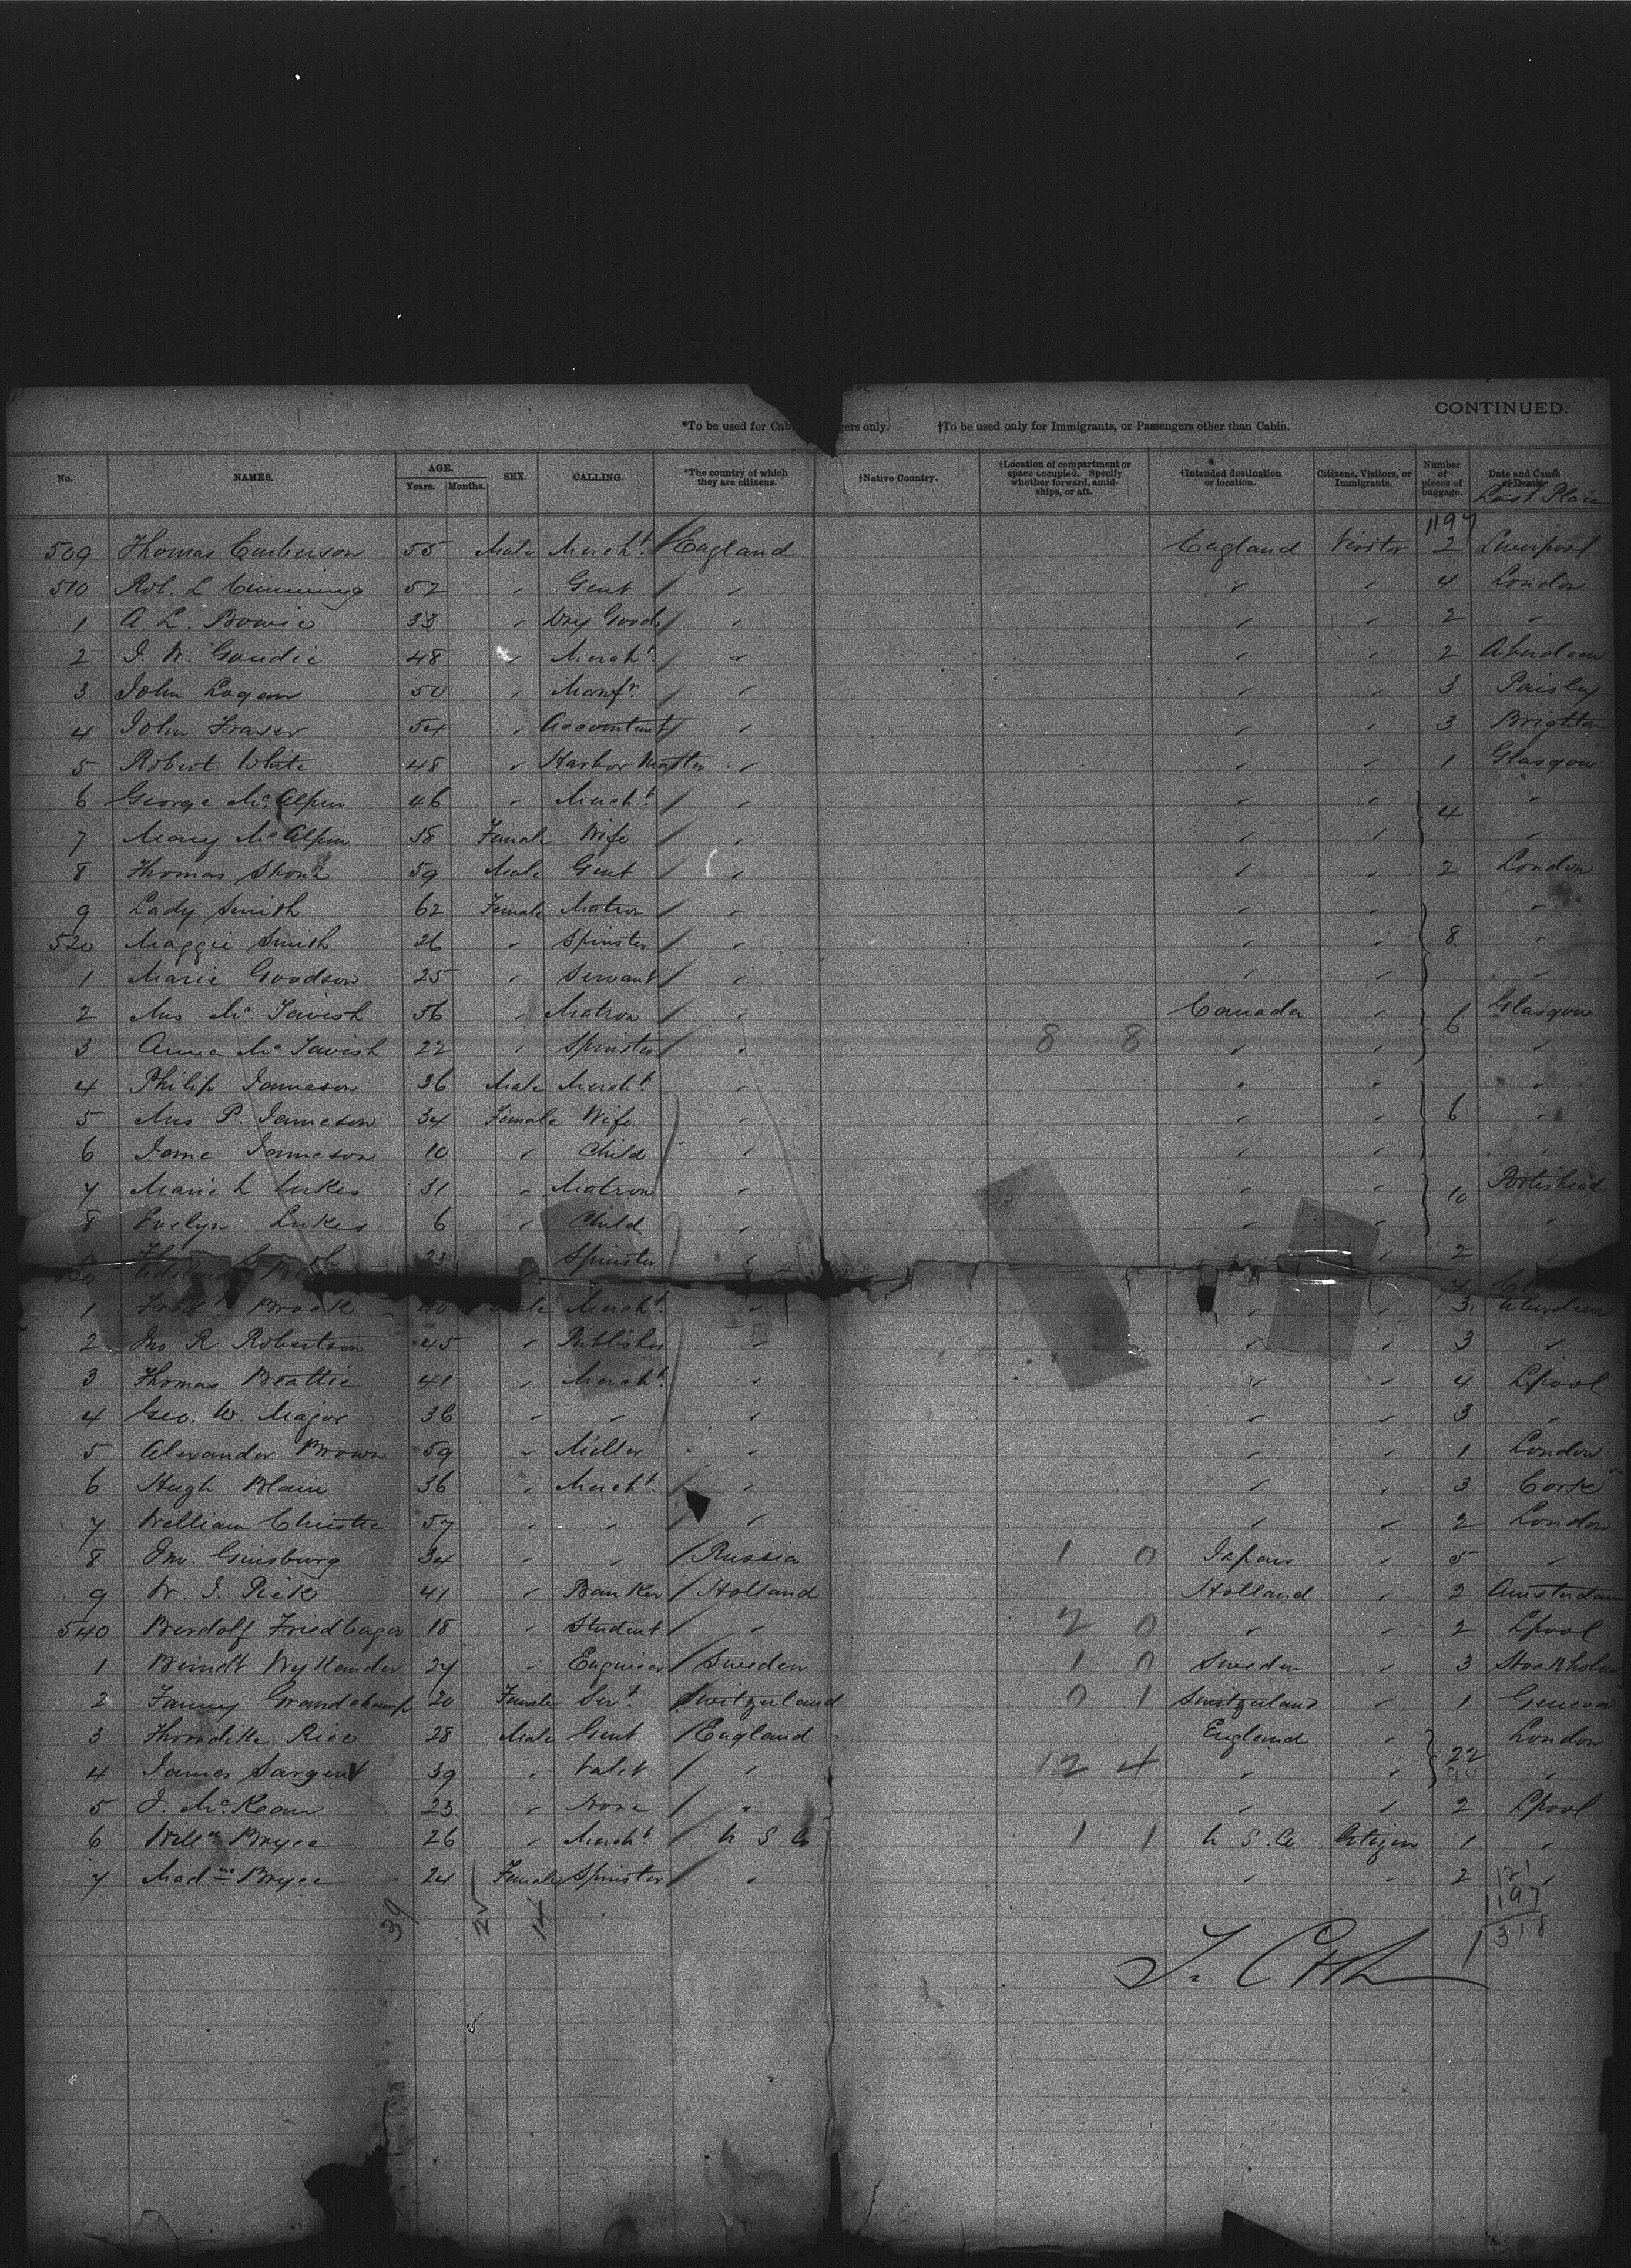 CONTINUED.
*To be used for Cab gers only. †To be used only for Immigrants, or Passengers other than Cabin.
No. NAMES. AGE. Years. Months. SEX. CALLING. *The country of which they are citizens. †Native Country. †Location of compartment or space occupied. Specify whether forward, amid-ships, or aft. †Intended destination or location. Citizens, Visitors, or Immigrants. Number of pieces of baggage. Date and Cause of Death. Last Place
1197
509 Thomas 55 Male Mercht. England England Visitor 2 Liverpool
510 Robt. L Cumming 52 " Gent " " " 4 London
1 A. L. Bowie 33 " Dry Goods " " " 2 "
2 J. W. Goudie 48 " Mercht " " " 2 Aberdeen
3 John Logan 50 " Manfr. " " " 3 Paisley
4 John Fraser 54 " Accountant " " " 3 Brighton
5 Robert White 48 " Harbor Master " " " 1 Glasgow
6 George McAlpin 46 " Mercht. " " " 4 "
7 Mary McAlpin 38 Female Wife " " " "
8 Thomas 59 Male Gent " " 2 London
9 Lady Smith 62 Female Matron " " " "
520 Maggie Smith 26 " Spinster " " " 8 "
1 Marie Goodson 25 " Servant " " " "
2 Mrs McTavish 56 " Matron " Canada " 6 Glasgow
3 Anna McTavish 22 " Spinster " 8 8 " " "
4 Philip Jameson 36 Male Mercht. " " " "
5 Mrs P. Jameson 34 Female Wife " " " 6 "
6 Jameson 10 " Child " " " "
7 Marie L Lukes 31 " Matron " " " 10 Portishead
8 Evelyn Lukes 6 " Child " " " "
23 Spinster " " 2 "
530
1 Fredk Brook 40 Male Mercht. " " " 3 Aberdeen
2 Jno R Robertson 45 " Publisher " " " 3 "
3 Thomas Beattie 41 " Mercht. " " " 4 Lpool
4 Geo. W. Major 36 " " " " " 3 "
5 Alexander Brown 59 " Miller " " " 1 London
6 Hugh Blain 36 " Mercht. " " " 3 Cork
7 William Christie 57 " " " " " 2 London
8 Jno. Ginsburg 34 " " Russia 1 0 Japan " 5 "
9 W. J. 41 " Banker Holland Holland " 2 Amsterdam
540 18 " Student " 2 0 " " 2 Lpool
1 27 " Engineer Sweden 1 0 Sweden " 3 Stockholm
2 Fanny Grandchamp 20 Female Servt. Switzerland 0 1 Switzerland " 1 Geneva
3 Thorndike Rice 28 Male Gent England England " London
4 James Sargent 39 " Valet " 12 4 " " 22 "
5 J. McKeown 23 " None " " " 2 Lpool
6 Willm Bryce 26 " Mercht. U S A 1 1 U S A Citizen 1 "
7 Madme Bryce 24 Female Spinster " " " 2 "
121
1197
1318
39 25 14